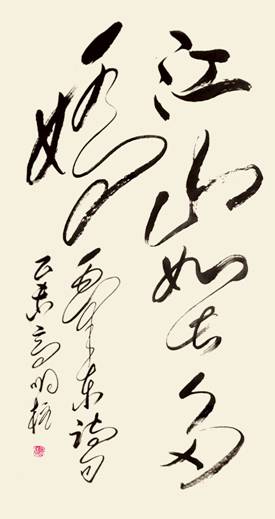 江山如此多
娇
毛泽东诗句
乙未高明